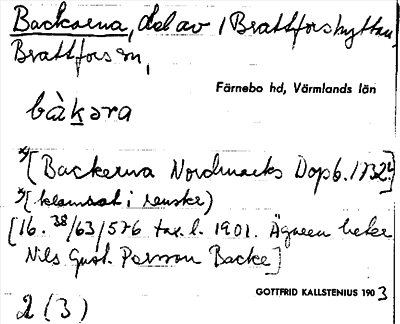 Backarna, del av 1 Brattforshyttan,
Brattfors sn,
Färnebo hd, Värmlands län
bàkəra
*)[Backerna Nordmarks Dopb. 1732]
*)(klamrat i renskr)
[16. 38/63/576 tax. l. 1901. Ägaren heter
Nils Gust. Persson Backe]
GOTTFRID KALLSTENIUS 1903
2 (3)